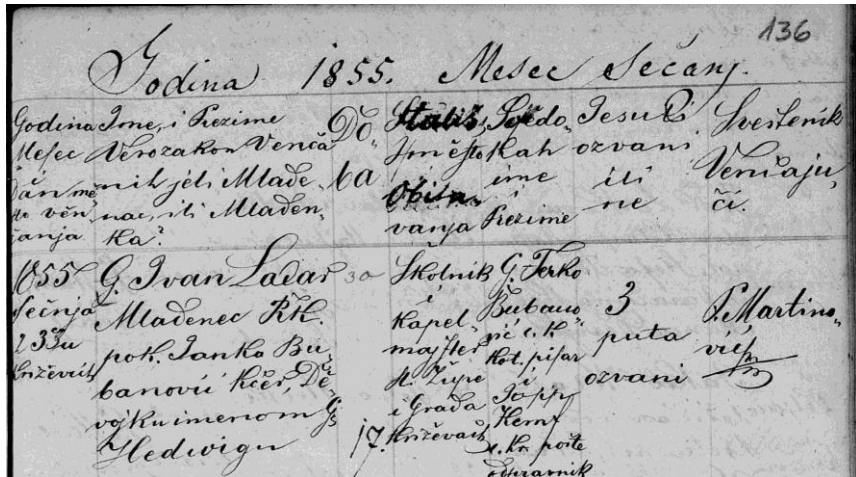 136
Godina 1855. Mesec Sečanj.
Godina Mesec Dan mě- sto věn- čanja
Ime, i Prezime Verozakon Venča nih jeli Mlade- nac, ili Mladen- ka?
Do- ba
i město Obita- vanja
Svědo- kah ime i Prezime
Jesu li ozvani ili ne
Svešteník Venčaju- či.
1855 Sečnja 23ga Križevcih
G. Ivan Ladař Mladenec Rk. pok. Janka Bu- banović kćer, Dě- vojku imenom Gs Hedwigu
30
17.
Školnik i kapel- majster st. Župe i Grada Križevacah
G. Ferko Bubano- vić c. k. Kot. pisar i Josip Kern c. kr. pošte odpravnik
3 puta ozvani
P. Martino- vić